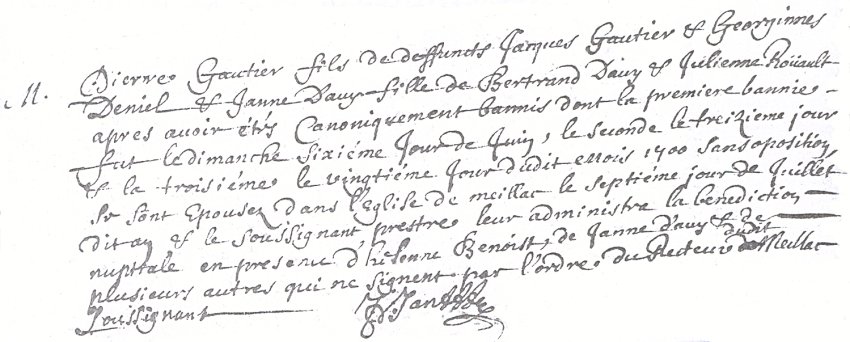 M. Pierre Gautier fils de deffuncts Jacques Gautier & Georginnes
Deniel & Janne Davy fille de Bertrand Davy & Julienne Roüault
apres avoir étés Canoniquement bannis dont la premiere bannie
fut le dimanche sixiéme Jour de Juin, le seconde le treizieme jour
& la troisiéme le vingtiéme Jour dudit mois 1700 sans oposition
se sont Epousez dans l'Eglise de meillac le septiéme jour de Juillet
dit an & le soussignant prestre leur administra la benediction
nuptiale en presence d'helenne Benoist, de Janne davy & de
plusieurs autres qui ne signent par l'ordre du Recteur dudit Meillac
Soussignant